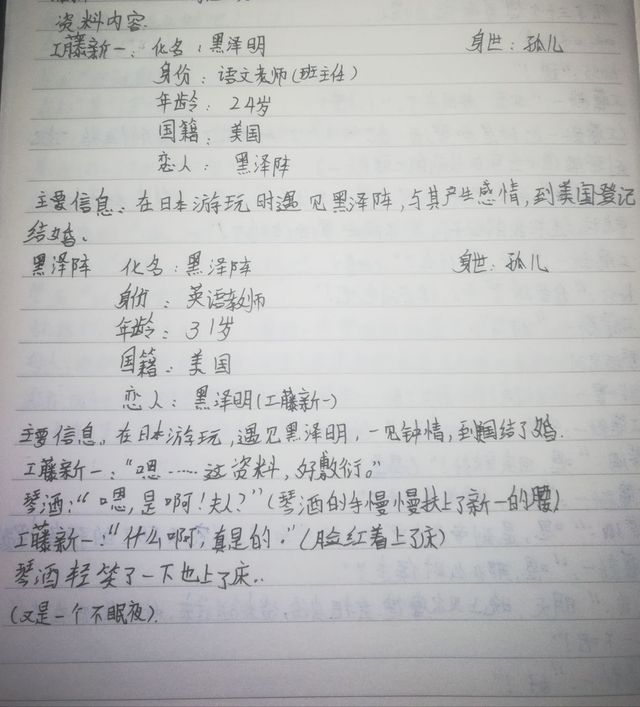 资料内容
工藤新一: 化名:黑泽明 身世:孤儿
身份:语文老师(班主任)
年龄:24岁
国籍:美国
恋人:黑泽阵
主要信息、在日本游玩时遇见黑泽阵,与其产生感情,到美国登记
结婚。
黑泽阵 化名:黑泽阵 身世:孤儿
身份:英语教师
年龄:31岁
国籍:美国
恋人:黑泽明(工藤新一)
主要信息。在日本游玩,遇见黑泽明,一见钟情,到国结了婚.
工藤新一:“嗯……这资料,好敷衍。”
琴酒:“嗯,是啊!夫人?”(琴酒的手慢慢扶上了新一的腰)
工藤新一:“什么啊,真是的。”(脸红着上了床)
琴酒轻笑了一下也上了床..
(又是一个不眠夜).